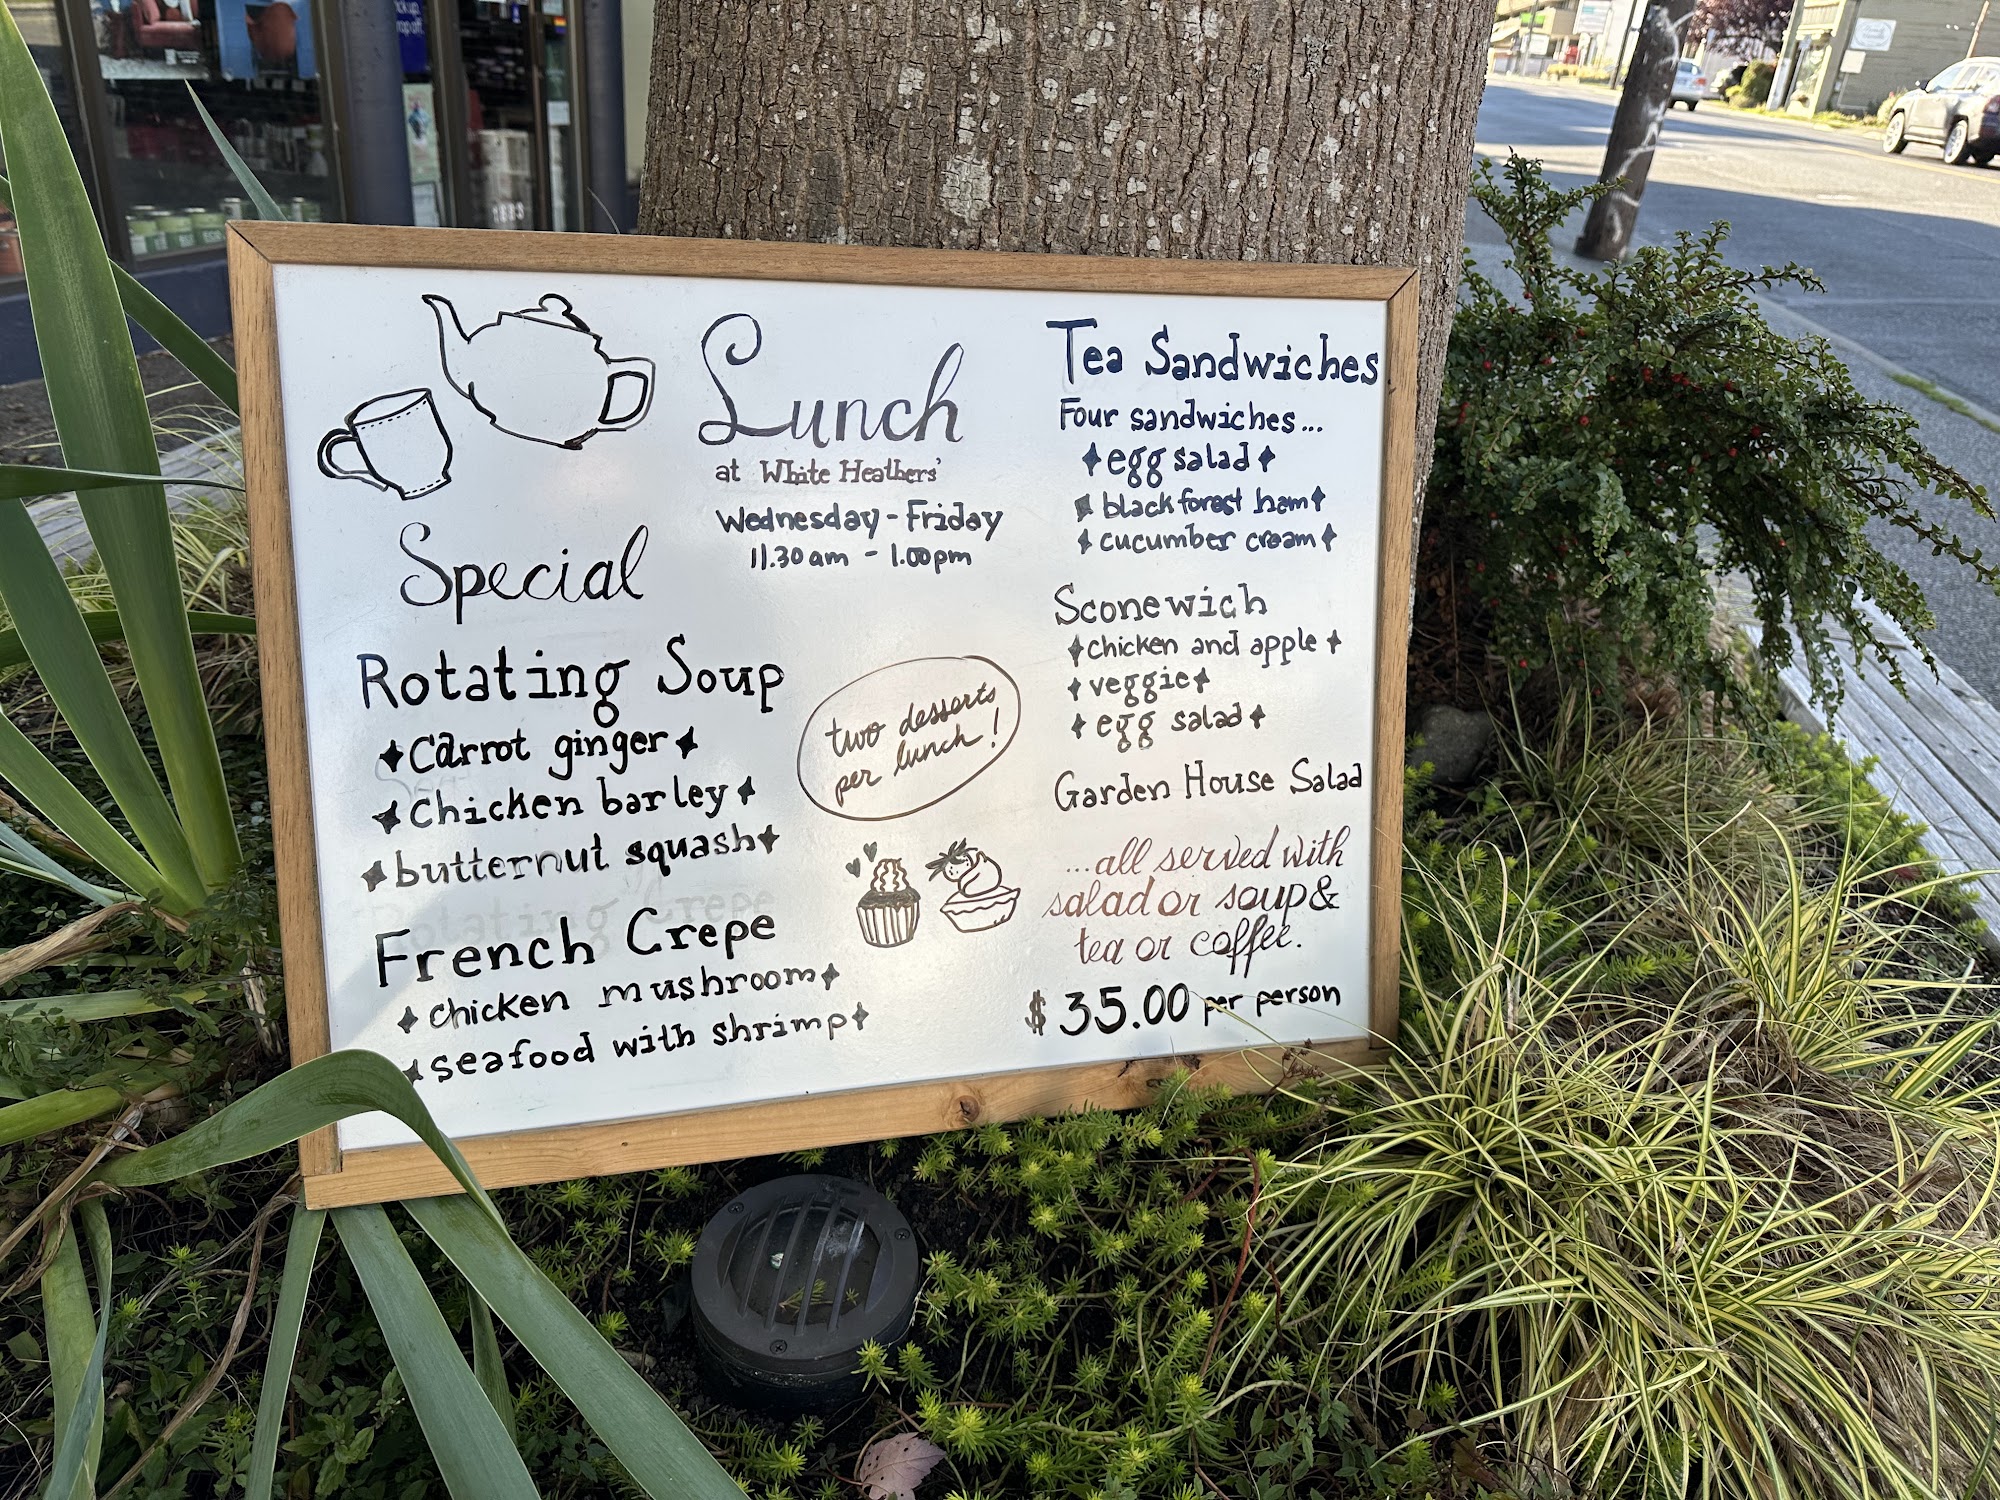 Lunch
at White Heathers'
Wednesday - Friday
11.30 am - 1.00pm
Special
Rotating Soup
Carrot ginger
Chicken barley
butternut squash
French Crepe
chicken mushroom
seafood with shrimp
two desserts
per lunch!
Tea Sandwiches
Four sandwiches...
egg salad
black forest ham
cucumber cream
Sconewich
chicken and apple
veggie
egg salad
Garden House Salad
...all served with
salad or soup &
tea or coffee.
$35.00 per person